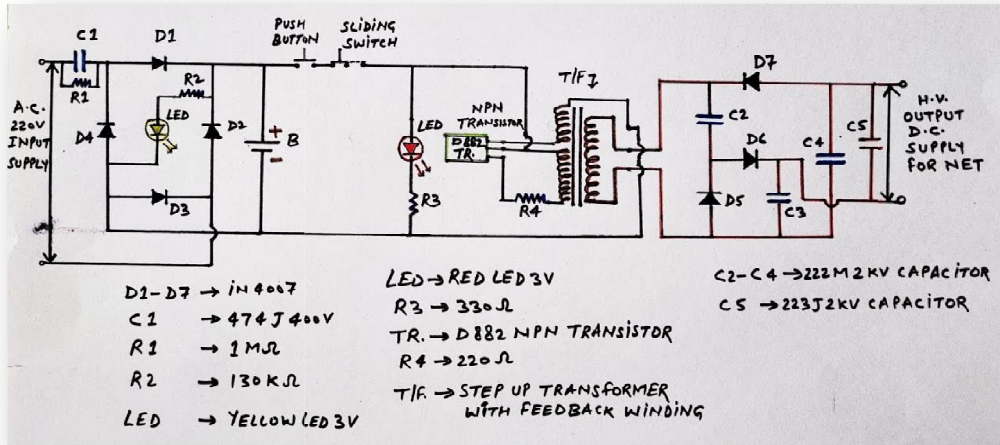 C1
D1
PUSH
BUTTON
SLIDING
SWITCH
T/F.
D7
R1
R2
A.C.
220V
INPUT
SUPPLY
LED
D4
D2
+
B
-
LED
NPN
TRANSISTOR
D882
TR.
C2
D6
C4
C5
H.V.
OUTPUT
D.C.
SUPPLY
FOR NET
D3
R3
R4
D5
C3
D1-D7 → iN4007
C1 → 474J400V
R1 → 1MΩ
R2 → 130KΩ
LED → YELLOW LED 3V
LED → RED LED 3V
R3 → 330Ω
TR. → D882 NPN TRANSISTOR
R4 → 220Ω
T/F. → STEP UP TRANSFORMER
WITH FEEDBACK WINDING
C2-C4 → 222M2KV CAPACITOR
C5 → 223J2KV CAPACITOR